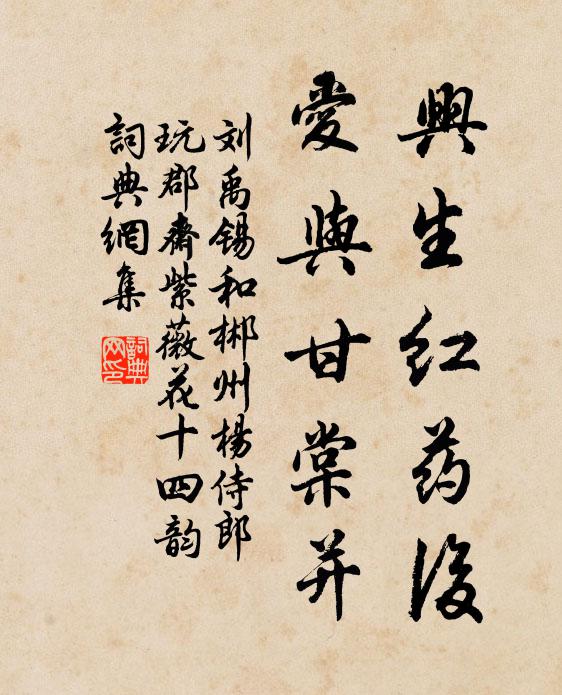 興生红药後
愛與甘棠并
刘禹锡和郴州楊侍郎
玩郡齋紫薇花十四韵
詞典網集
詞典网印